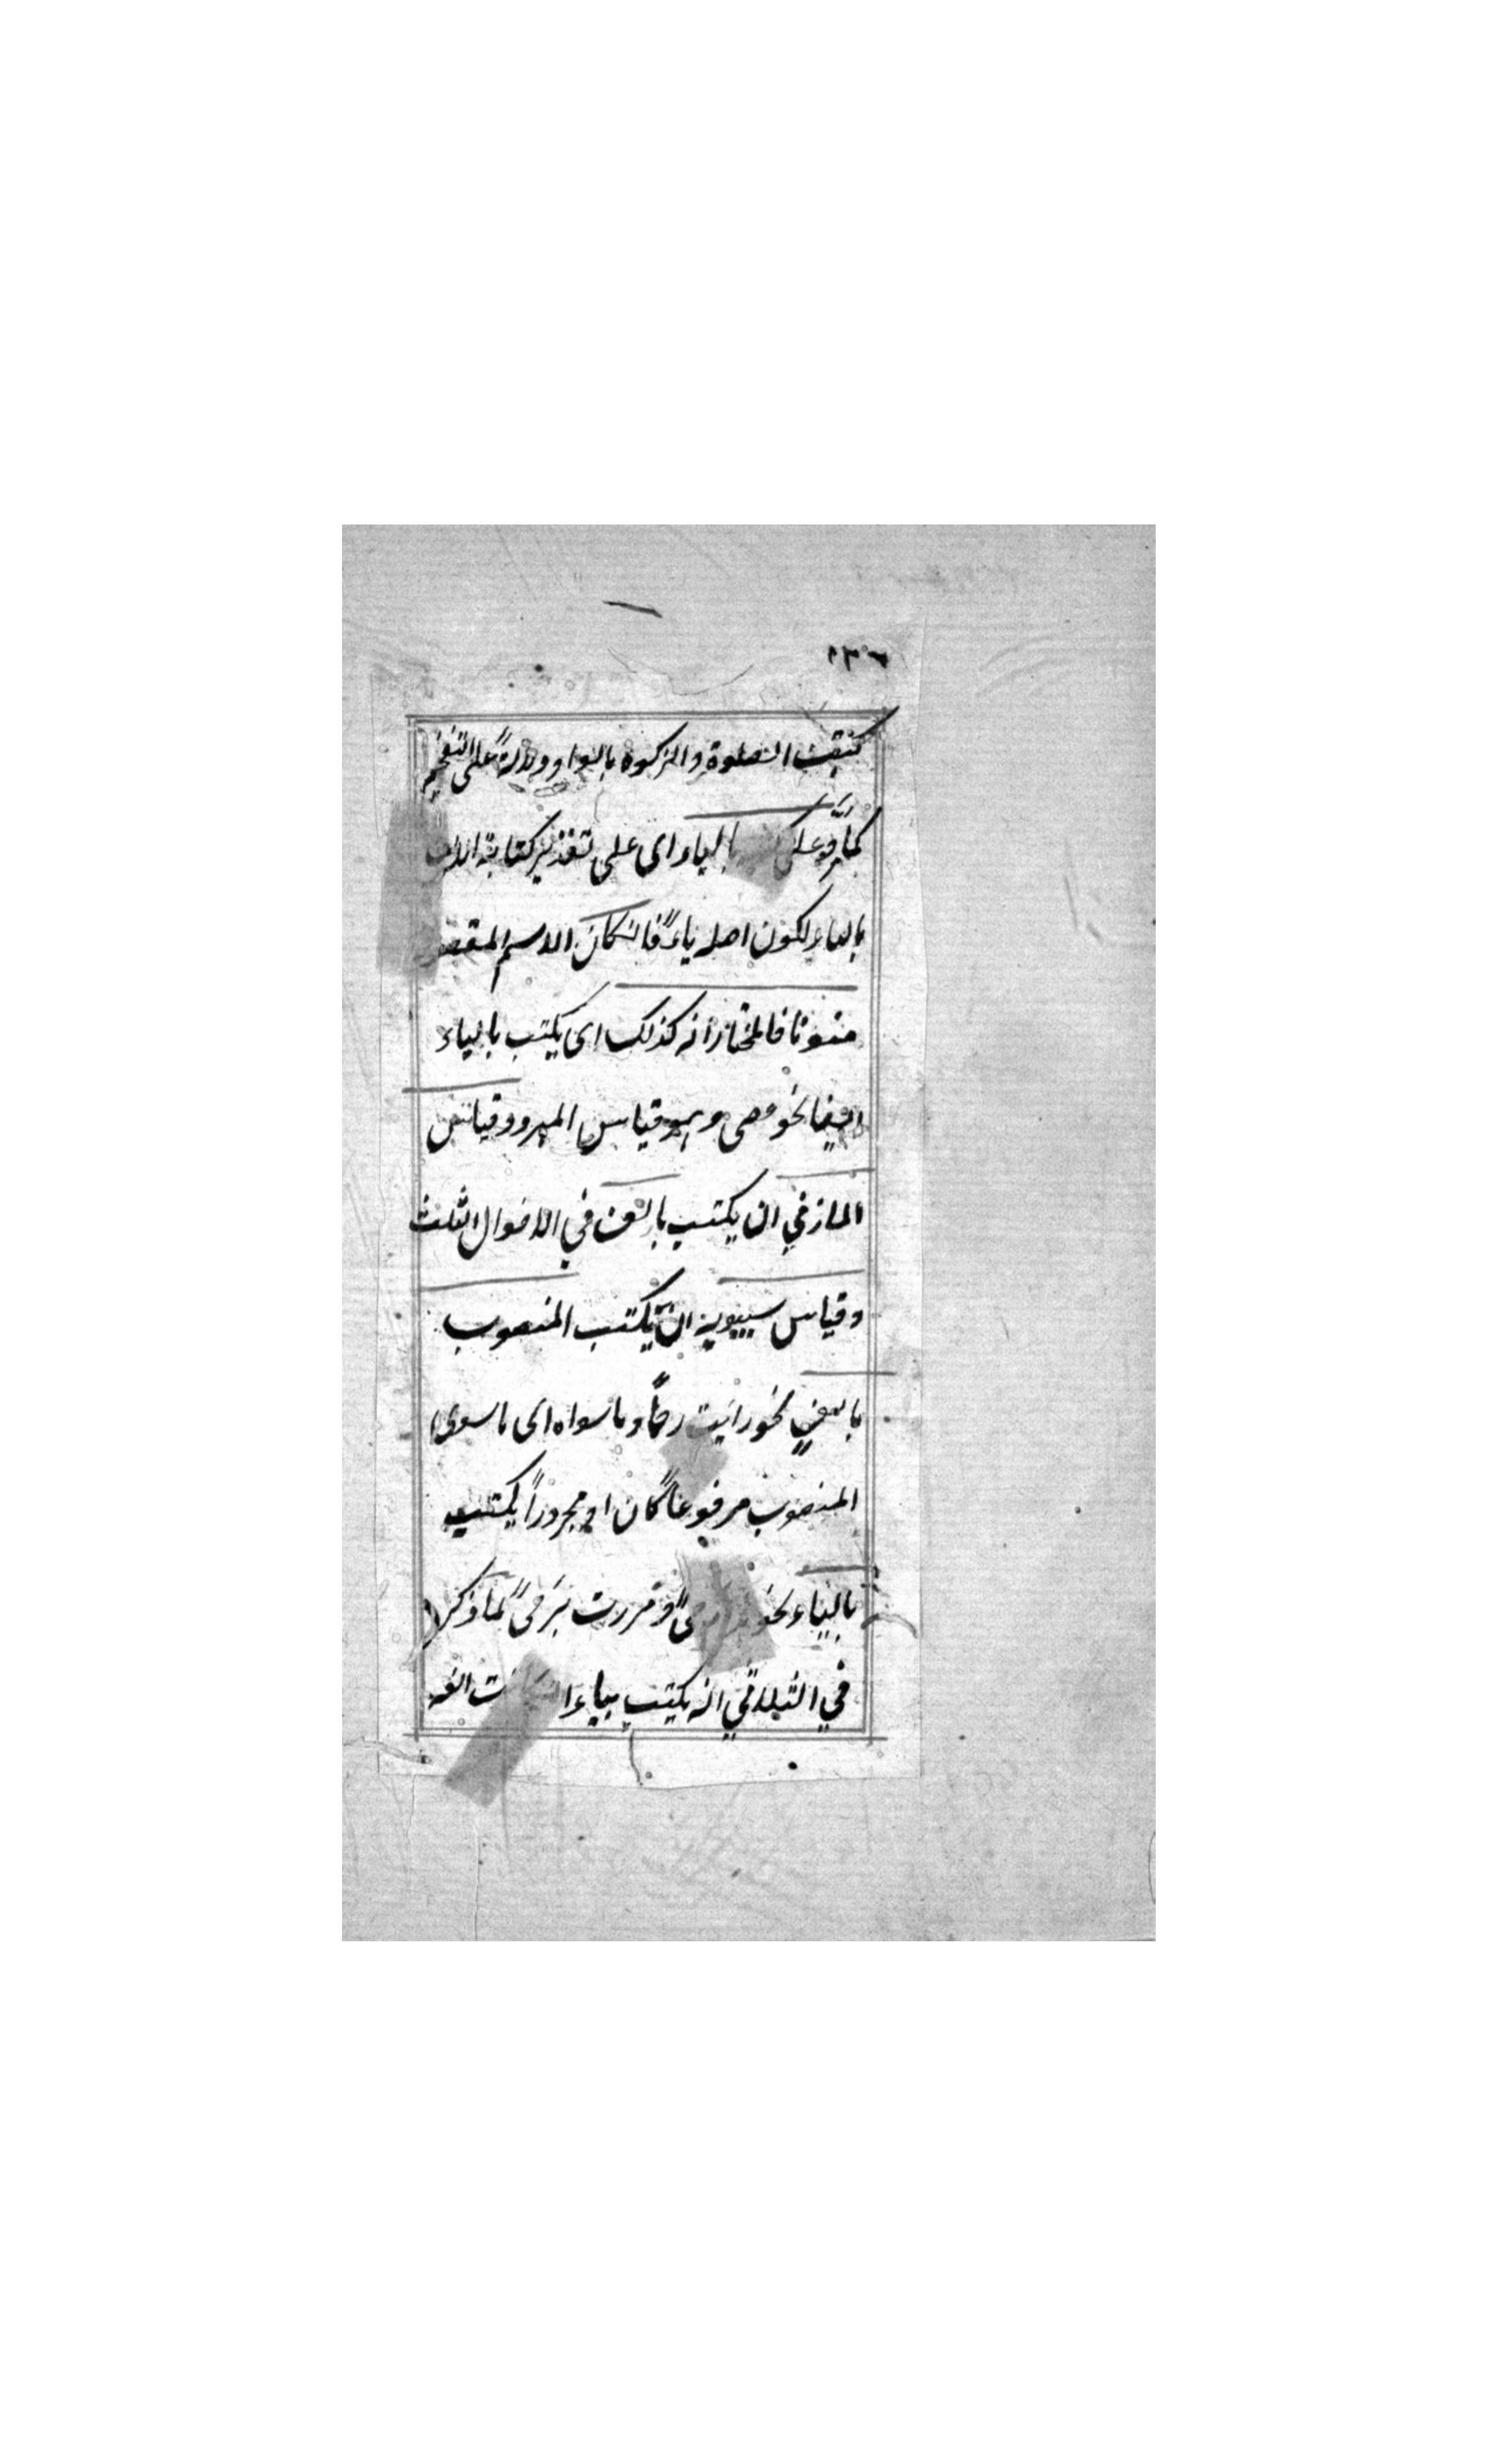 ١٣٦
كتبت الصلوة والزكوة بالواو ودلالة على التفخيم
كما مر وعلى بالياء اى على تقدير كتابة الالف
بالياء لكون اصله ياء فان كان الاسم المقصور
منونا فالمختار انه كذلك اى يكتب بالياء
ايضا نحو عصى وهو قياس المبرد وقياس
المازني ان يكتب بالف في الاحوال الثلث
وقياس سيبويه ان يكتب المنصوب
بالف نحو رايت رحًا وما سواه اى ما سوى
المنصوب مرفوعاً كان او مجروراً يكتب
بالياء نحو ومررت برحىً لما ذكر
في الثلاثي انه يكتب بياء ان كانت الفه